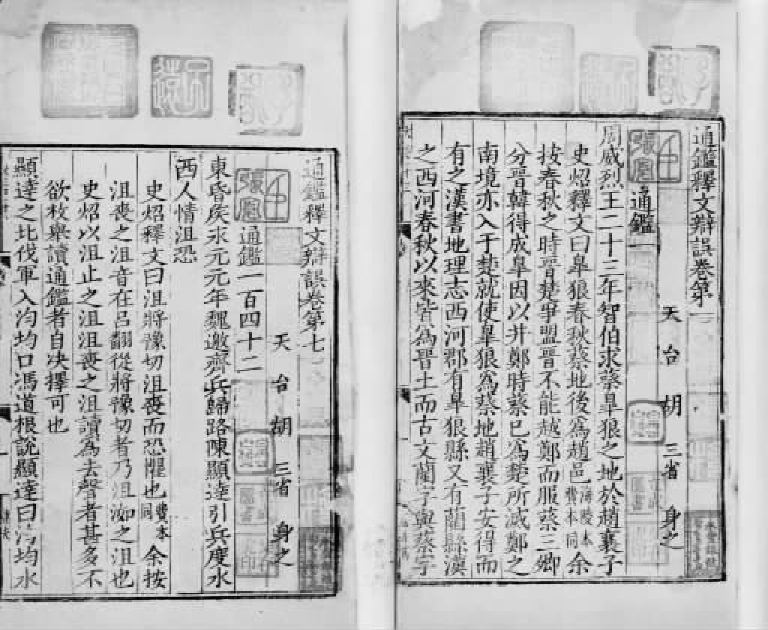 通鑑釋文辯誤卷第一
天台胡三省身之
通鑑一
周威烈王二十三年智伯求蔡臯狼之地於趙襄子
史炤釋文曰臯狼春秋蔡地後為趙邑海陵本費本同余
按春秋之時晉楚爭盟晉不能越鄭而服蔡三卿
分晉韓得成臯因以并鄭時蔡已為楚所滅鄭之
南境亦入于楚就使臯狼為蔡地趙襄子安得而
有之漢書地理志西河郡有臯狼縣又有藺縣漢
之西河春秋以來皆為晉土而古文藺字與蔡字
通鑑釋文辯誤卷第七
天台胡三省身之
通鑑一百四十二
東昏矦永元元年魏邀齊兵歸路陳顯達引兵度水
西人情沮恐
史炤釋文曰沮將豫切沮喪而恐懼也費本同余按
沮喪之沮音在呂翻從將豫切者乃沮洳之沮也
史炤以沮止之沮沮喪之沮讀為去聲者甚多不
欲枚舉讀通鑑者自決擇可也
顯達之北伐軍入汮均口馮道根說顯達曰汮均水